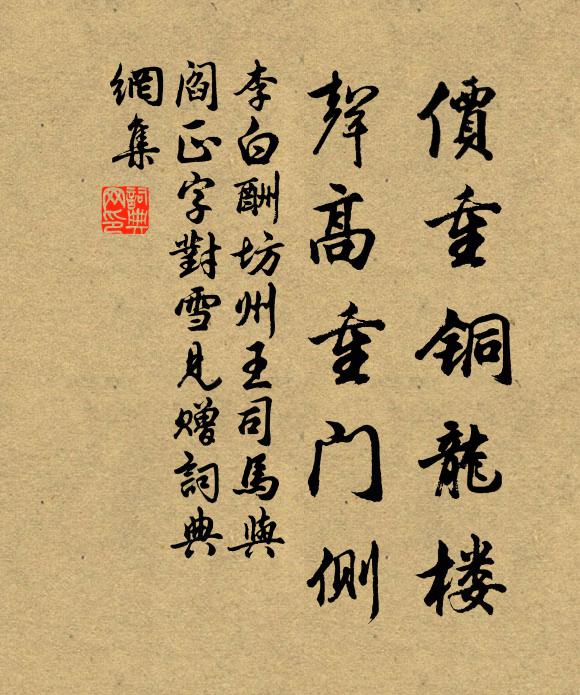 價重銅龍楼
聲高重門側
李白酬坊州王司馬與
閻正字對雪見贈詞典
網集
詞典網印